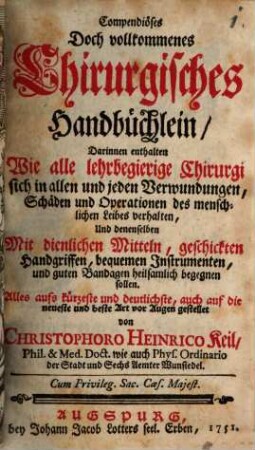 1.
Compendiöses
Doch vollkommenes
Chirurgisches
Handbüchlein/
Darinnen enthalten
Wie alle lehrbegierige Chirurgi
sich in allen und jeden Verwundungen,
Schäden und Operationen des mensch-
lichen Leibes verhalten,
Und denenselben
Mit dienlichen Mitteln, geschickten
Handgriffen, bequemen Instrumenten,
und guten Bandagen heilsamlich begegnen
sollen.
Alles aufs kürzeste und deutlichste, auch auf die
neueste und beste Art vor Augen gestellet
von
CHRISTOPHORO HEINRICO Keil,
Phil. & Med. Doct. wie auch Phys. Ordinario
der Stadt und Sechs Aemter Wunsiedel.
Cum Privileg. Sac. Cæs. Majest.
AUGSPURG,
bey Johann Jacob Lotters seel. Erben, 1751.